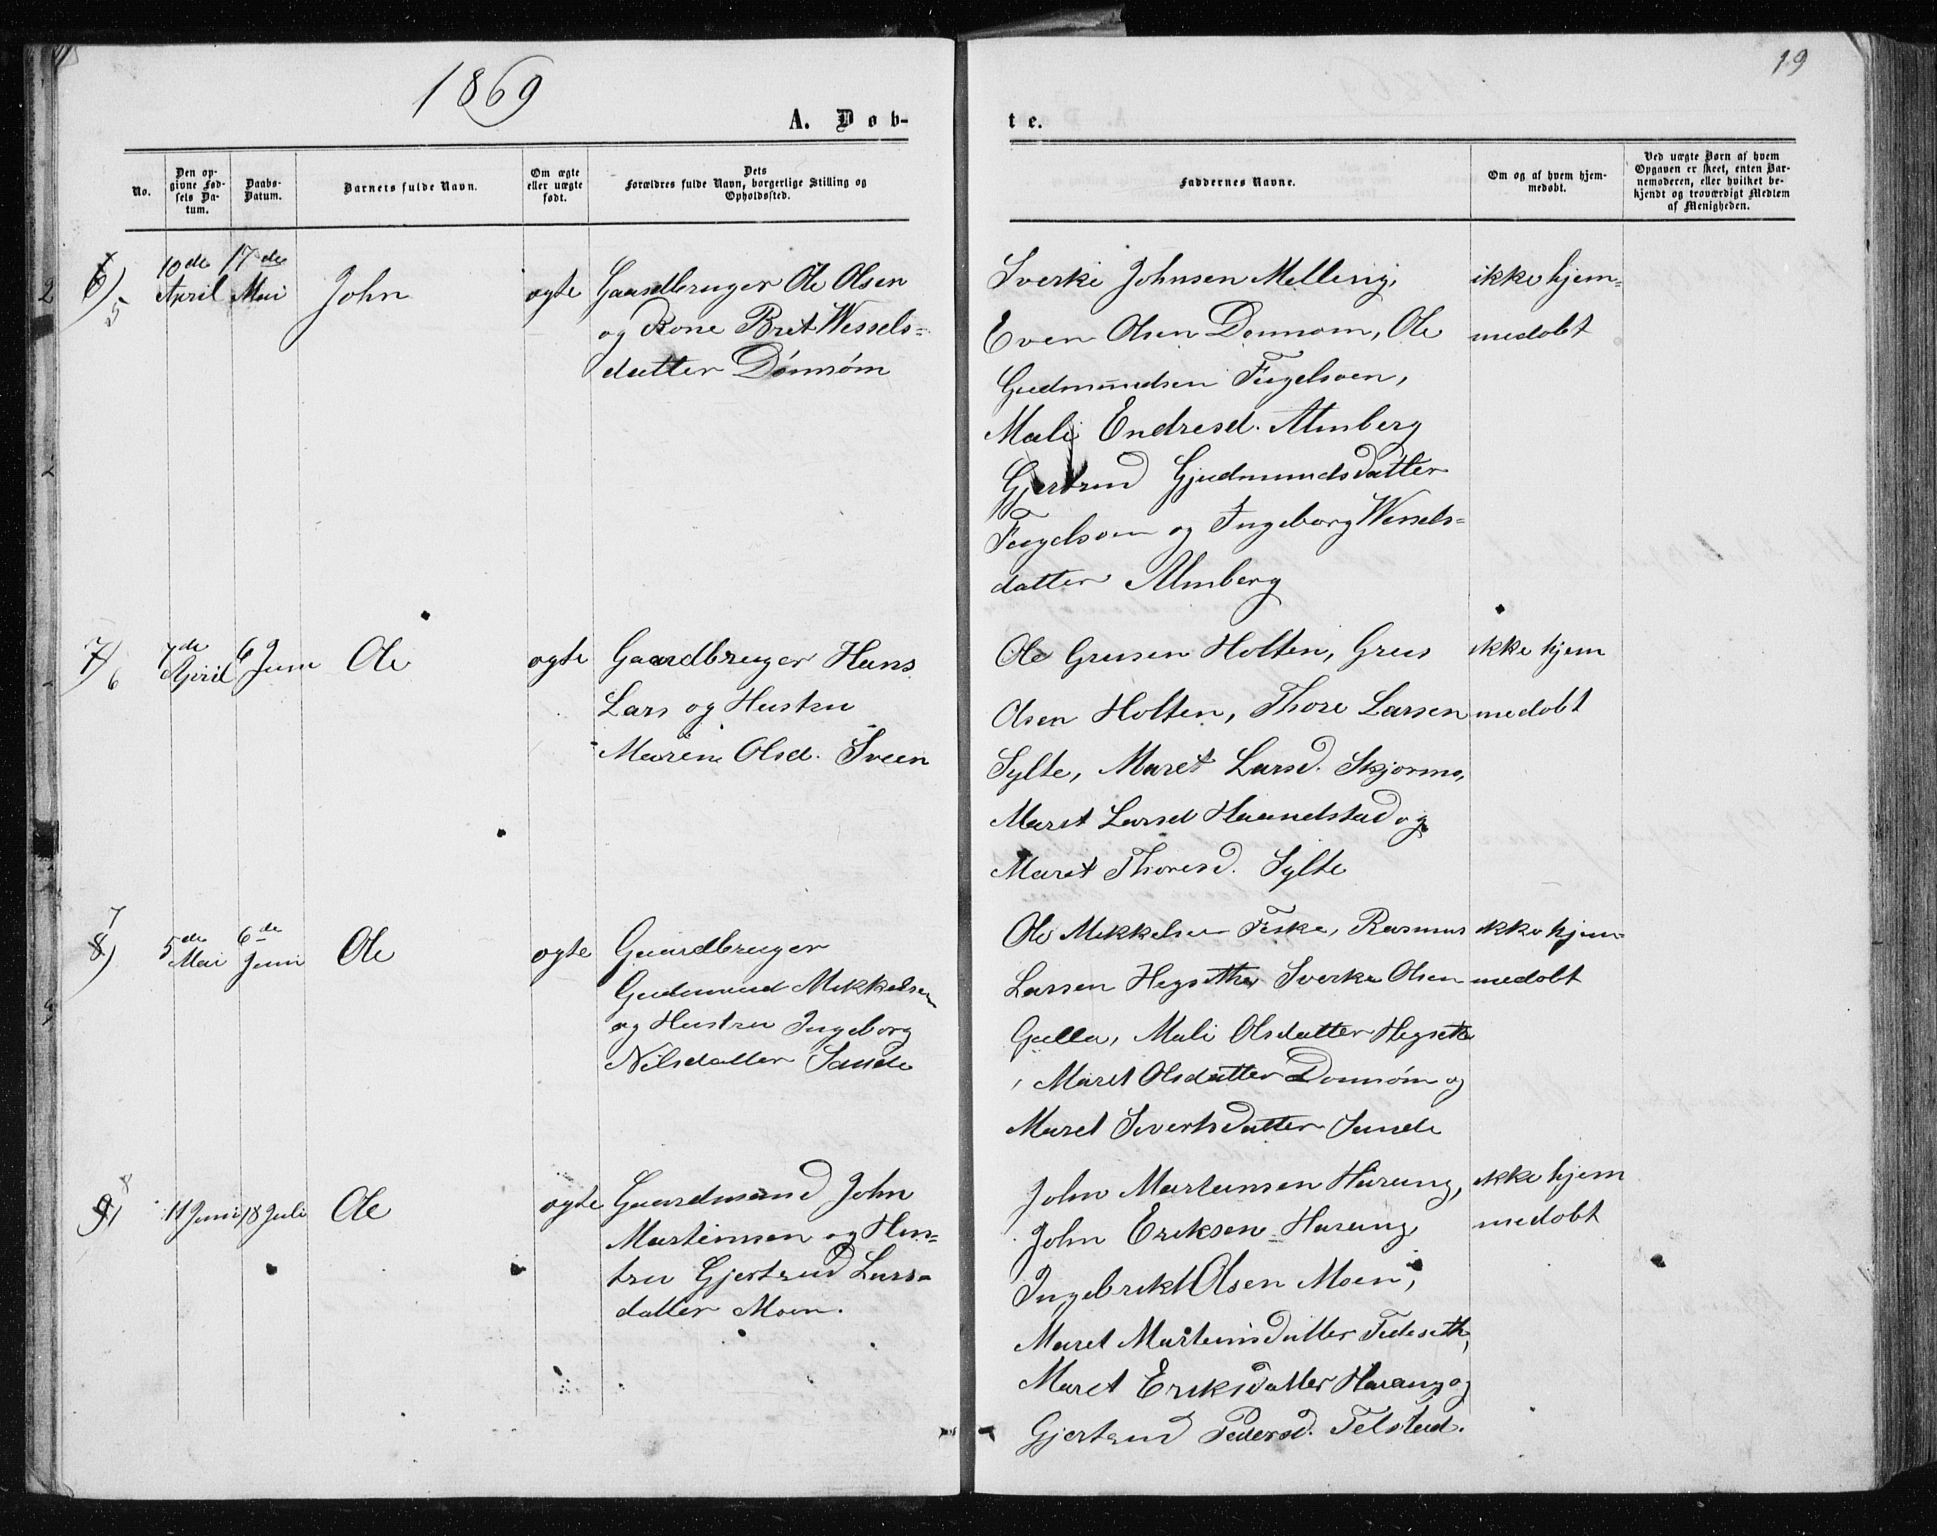 1869
19
A. Døb-
te.
No.
Den op-
givne Fød-
sels Da-
tum.
Daabs-
Datum.
Barnets fulde Navn.
Om ægte
eller uægte
født.
Dets
Forældres fulde Navn, borgerlige Stilling og
Opholdssted.
Faddernes Navne.
Om og af hvem hjem-
medøbt.
Ved uægte Børn af hvem
Opgaven er skeet, enten Bar-
nemoderen, eller hvilket be-
kjendt og troværdigt Medlem
af Menigheden.
6) 5
10de April
17de Mai
John
ægte
Gaardbruger Ole Olsen
og Kone Bret Wessels-
datter Dónnóm
Sverke Johnsen Melling,
Even Olsen Donnom, Ole
Gudmundsen Fugelsoen,
Mali Endresd. Almberg
Gjertrud Gjudmundsdatter
Fugelsoen og Ingeborg Wessels-
datter Almberg
ikke hjem-
medøbt
7) 6
7de April
6 Juni
Ole
ægte
Gaardbruger Hans
Lars og Hustru
Maren Olsd. Sveen
Ole Greusen Holten, Greus
Olsen Holten, Thore Larsen
Sylte, Maret Larsd. Skjørmo,
Maret Larsd Haandstad og
Maret Thoresd. Sylte
ikke hjem
medøbt
7
8)
5de Mai
6de Juni
Ole
ægte
Gaardbruger
Gudmund Mikkelsen
og Hustru Ingeborg
Nilsdatter Sande
Ole Mikkelsen Fiske, Rasmus
Larsen Hegseth, Sverke Olsen
Gulla, Mali Olsdatter Hegseth
, Maret Olsdatter Donnóm og
Maret Sivertsdatter Sande
ikke hjem-
medøbt
8
9)
11 Juni
18 Juli
Ole
ægte
Gaardmand John
Martinusen og Hus-
tru Gjertrud Lars-
datter Moen.
John Martinusen Harang,
John Eriksen Harang,
Ingebrikt Olsen Moen,
Maret Martinsdatter Tideseth,
Maret Eriksdatter Harang og
Gjertrud Pedersd. Telstad.
ikke hjem
medøbt